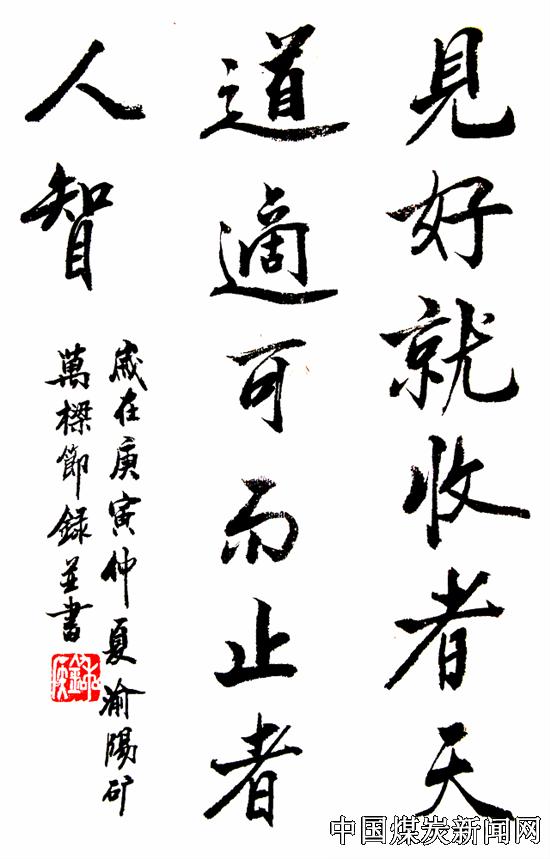 見好就收者天
道適可而止者
人智
歲在庚寅仲夏渝陽矿
萬樑節録並書
中国煤炭新闻网